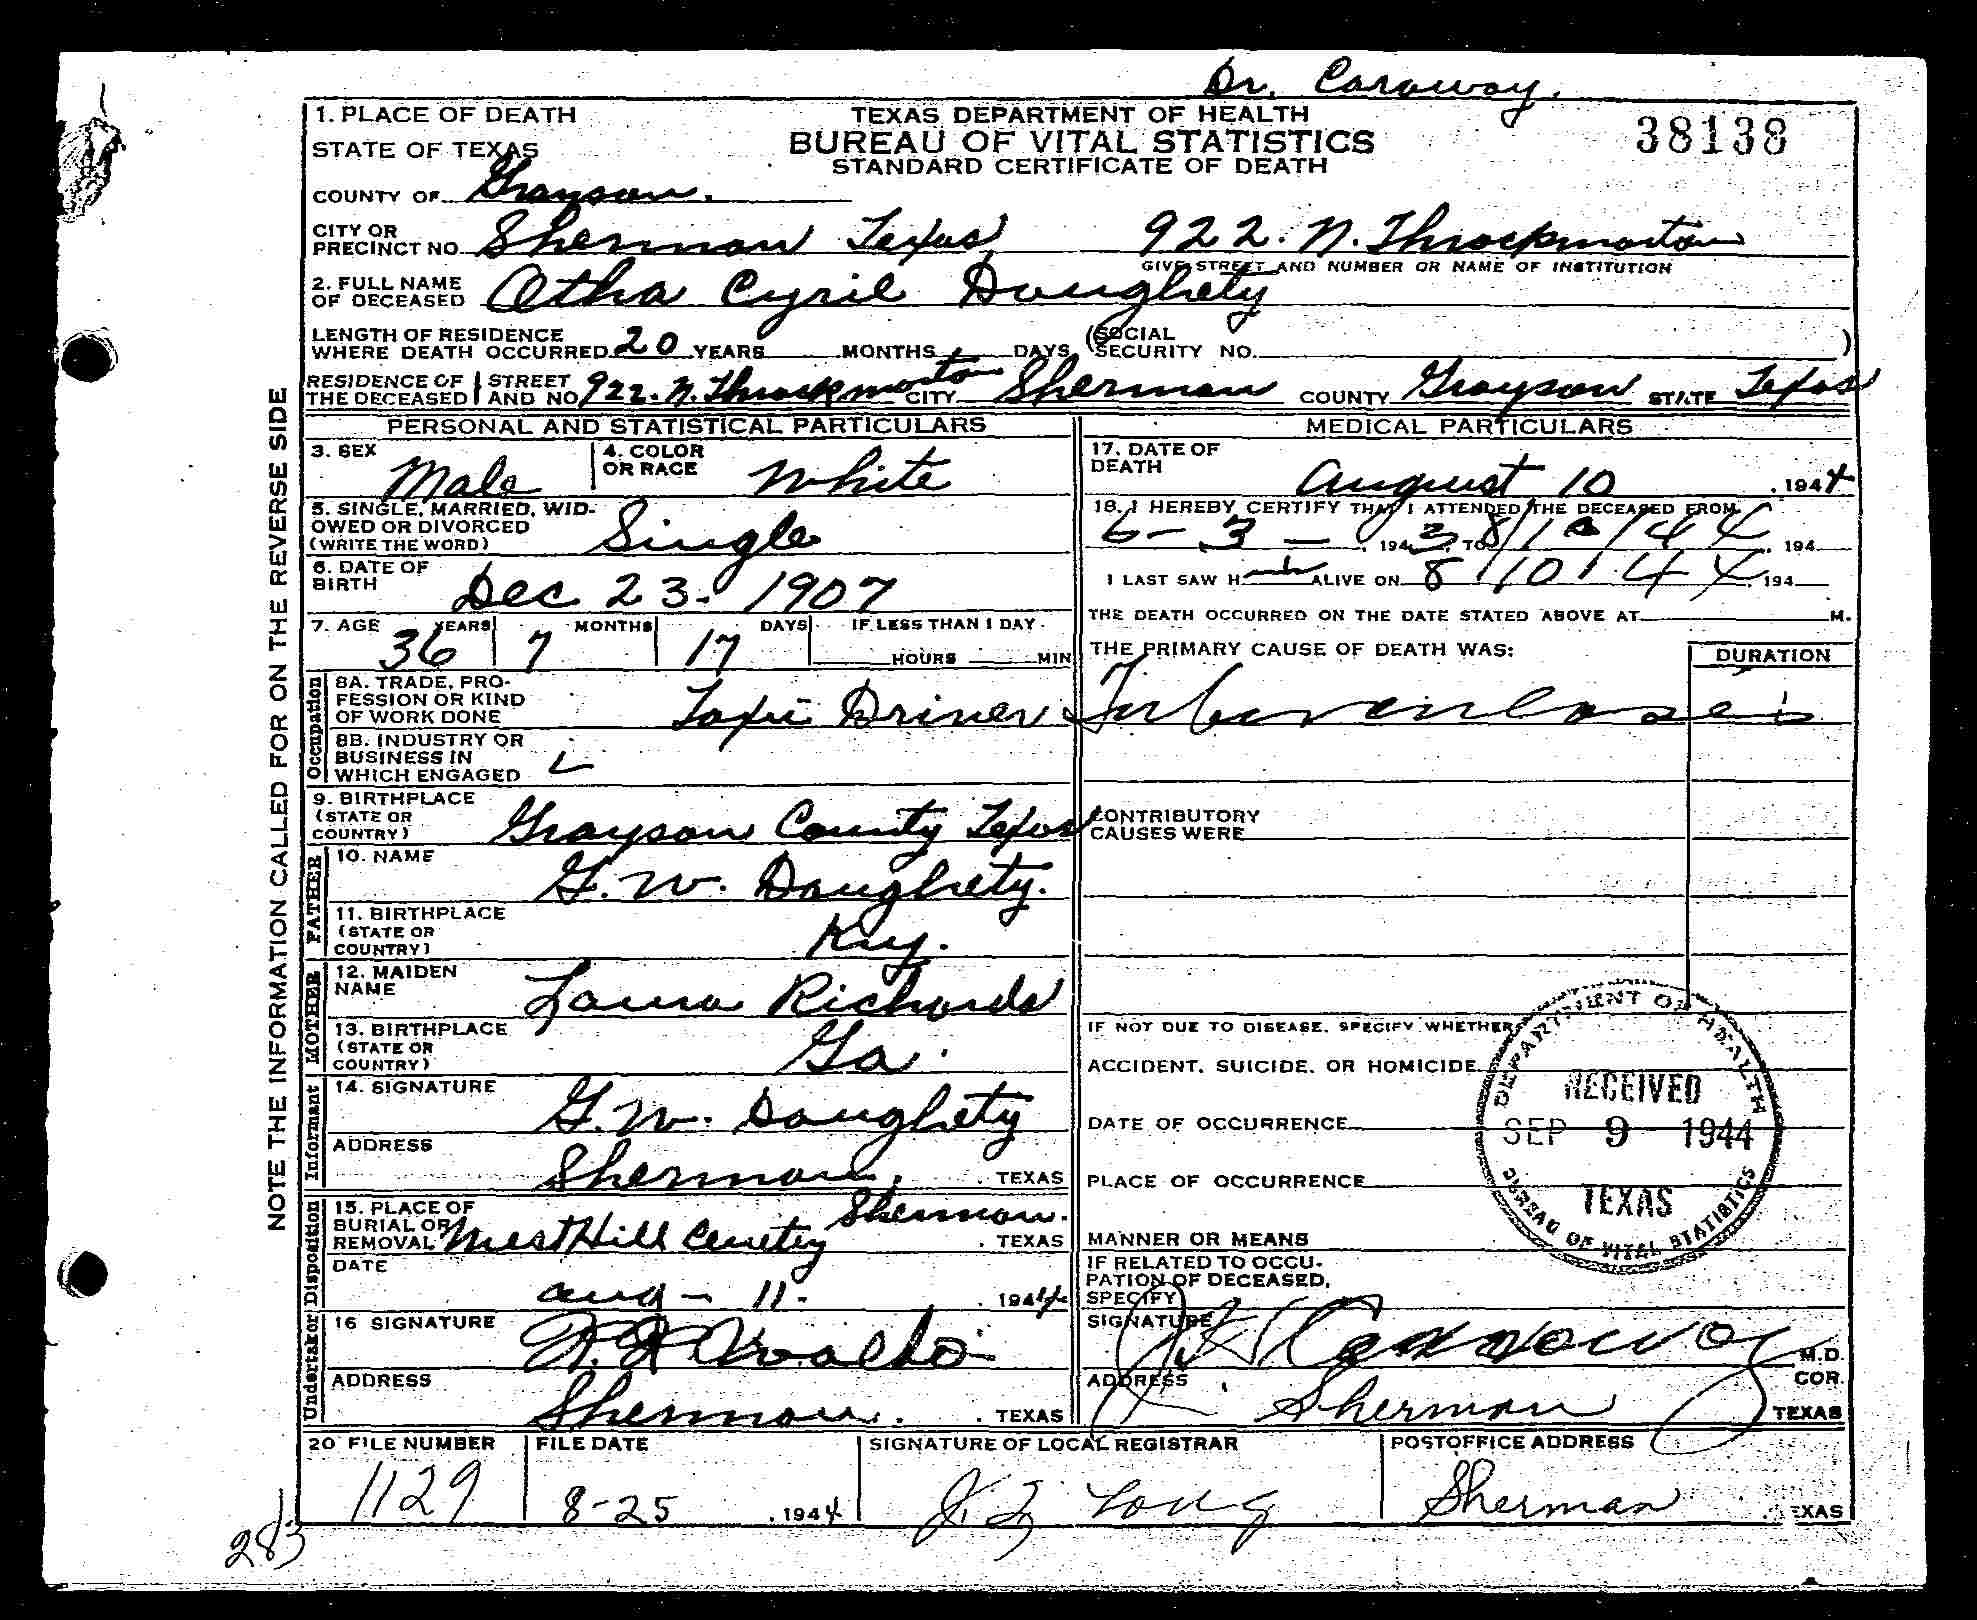 Dr. Caraway.
1. PLACE OF DEATH
STATE OF TEXAS
COUNTY OF Grayson.
TEXAS DEPARTMENT OF HEALTH
BUREAU OF VITAL STATISTICS
STANDARD CERTIFICATE OF DEATH
38138
CITY OR PRECINCT NO. Sherman Texas 922. N. Throckmorton
GIVE STREET AND NUMBER OR NAME OF INSTITUTION
2. FULL NAME OF DECEASED Otha Cyril Doughety
LENGTH OF RESIDENCE WHERE DEATH OCCURRED 20 YEARS MONTHS DAYS (SOCIAL SECURITY NO. )
RESIDENCE OF THE DECEASED STREET AND NO. 922. N. Throckmorton CITY Sherman COUNTY Grayson STATE Texas
NOTE THE INFORMATION CALLED FOR ON THE REVERSE SIDE
PERSONAL AND STATISTICAL PARTICULARS
3. SEX Male
4. COLOR OR RACE White
5. SINGLE, MARRIED, WIDOWED OR DIVORCED (WRITE THE WORD) Single
6. DATE OF BIRTH Dec 23- 1907
7. AGE 36 YEARS 7 MONTHS 17 DAYS IF LESS THAN 1 DAY HOURS MIN
Occupation
8A. TRADE, PROFESSION OR KIND OF WORK DONE Taxi Driver
8B. INDUSTRY OR BUSINESS IN WHICH ENGAGED
9. BIRTHPLACE (STATE OR COUNTRY) Grayson County Texas
FATHER
10. NAME G. W. Doughety.
11. BIRTHPLACE (STATE OR COUNTRY) Ky.
MOTHER
12. MAIDEN NAME Laura Richards
13. BIRTHPLACE (STATE OR COUNTRY) Ga.
Informant
14. SIGNATURE G. W. Doughety
ADDRESS Sherman, TEXAS
Disposition
15. PLACE OF BURIAL OR REMOVAL West Hill Cemetey Sherman. TEXAS
DATE Aug - 11- 1944
Undertaker
16 SIGNATURE
ADDRESS Sherman. TEXAS
MEDICAL PARTICULARS
17. DATE OF DEATH August 10, 1944
18. I HEREBY CERTIFY THAT I ATTENDED THE DECEASED FROM
6-3-, 1943, TO 8/10/44, 194
I LAST SAW H ALIVE ON 8/10/44, 194
THE DEATH OCCURRED ON THE DATE STATED ABOVE AT M.
THE PRIMARY CAUSE OF DEATH WAS: DURATION
Turberculosis
CONTRIBUTORY CAUSES WERE
IF NOT DUE TO DISEASE, SPECIFY WHETHER
ACCIDENT, SUICIDE, OR HOMICIDE
DATE OF OCCURRENCE
PLACE OF OCCURRENCE
MANNER OR MEANS
IF RELATED TO OCCUPATION OF DECEASED, SPECIFY
SIGNATURE Carroway M.D.
COR.
ADDRESS Sherman TEXAS
DEPARTMENT OF HEALTH
RECEIVED
SEP 9 1944
TEXAS
BUREAU OF VITAL STATISTICS
20 FILE NUMBER 1129
FILE DATE 8-25, 1944
SIGNATURE OF LOCAL REGISTRAR Long
POSTOFFICE ADDRESS Sherman, TEXAS
283